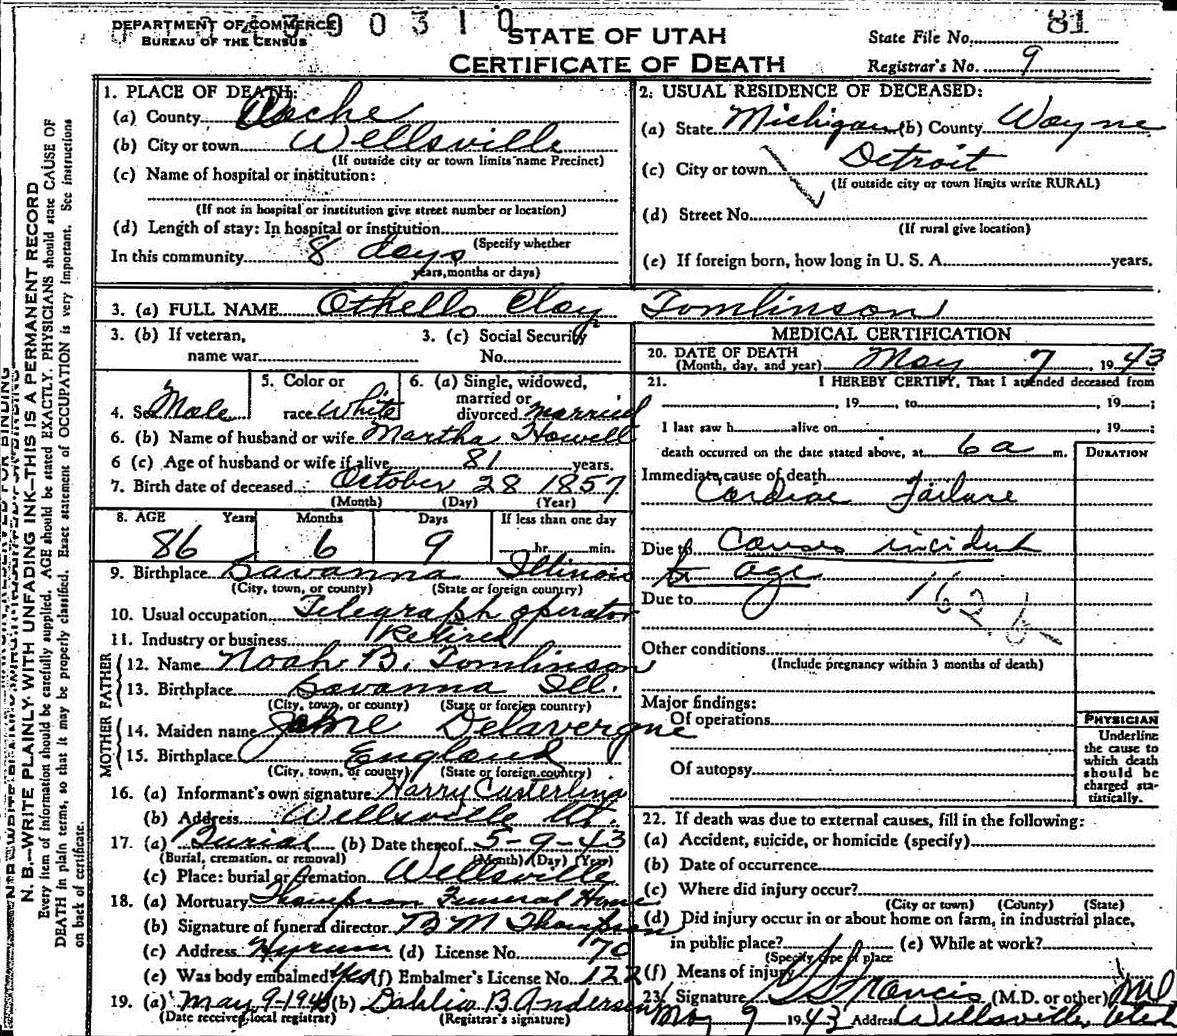 DEPARTMENT OF COMMERCE
BUREAU OF THE CENSUS
STATE OF UTAH
CERTIFICATE OF DEATH
State File No. 81
Registrar's No. 9
N. B.—WRITE PLAINLY WITH UNFADING INK—THIS IS A PERMANENT RECORD
Every item of information should be carefully supplied. AGE should be stated EXACTLY. PHYSICIANS should state CAUSE OF
DEATH in plain terms, so that it may be properly classified. Exact statement of OCCUPATION is very important. See instructions
on back of certificate.
1. PLACE OF DEATH:
(a) County Cache
(b) City or town Wellsville
(If outside city or town limits name Precinct)
(c) Name of hospital or institution:
(If not in hospital or institution give street number or location)
(d) Length of stay: In hospital or institution
(Specify whether
In this community 8 days
years, months or days)
2. USUAL RESIDENCE OF DECEASED:
(a) State Michigan (b) County Wayne
(c) City or town Detroit
(If outside city or town limits write RURAL)
(d) Street No.
(If rural give location)
(e) If foreign born, how long in U. S. A. years.
3. (a) FULL NAME Othello Clay Tomlinson
3. (b) If veteran,
name war
3. (c) Social Security
No.
4. Sex Male
5. Color or
race White
6. (a) Single, widowed,
married or
divorced married
6. (b) Name of husband or wife Martha Howell
6 (c) Age of husband or wife if alive 81 years.
7. Birth date of deceased October 28 1857
(Month) (Day) (Year)
8. AGE Years Months Days If less than one day
86 6 9 hr. min.
9. Birthplace Savanna Illinois
(City, town, or county) (State or foreign country)
10. Usual occupation Telegraph operator
11. Industry or business Retired
FATHER
12. Name Noah B. Tomlinson
13. Birthplace Savanna Ill.
(City, town, or county) (State or foreign country)
MOTHER
14. Maiden name Jane Delavergne
15. Birthplace England
(City, town, or county) (State or foreign country)
16. (a) Informant's own signature Harry Casterline
(b) Address Wellsville Ut.
17. (a) Burial (b) Date thereof 5-9-43
(Burial, cremation, or removal) (Month) (Day) (Year)
(c) Place: burial or cremation Wellsville
18. (a) Mortuary Thompson Funeral Home
(b) Signature of funeral director B M Thompson
(c) Address Hyrum (d) License No. 70
(e) Was body embalmed Yes (f) Embalmer's License No. 122
19. (a) May 9-1943 (b) Dahlia B. Andersen
(Date received local registrar) (Registrar's signature)
MEDICAL CERTIFICATION
20. DATE OF DEATH
(Month, day, and year) May 7, 1943
21. I HEREBY CERTIFY, That I attended deceased from
, 19 , to , 19 ;
I last saw h alive on , 19 ;
death occurred on the date stated above, at 6 a m.
DURATION
Immediate cause of death
Cardiac Failure
Due to Causes incident
to age
Due to 162.b
Other conditions
(Include pregnancy within 3 months of death)
Major findings:
Of operations
Of autopsy
PHYSICIAN
Underline
the cause to
which death
should be
charged sta-
tistically.
22. If death was due to external causes, fill in the following:
(a) Accident, suicide, or homicide (specify)
(b) Date of occurrence
(c) Where did injury occur?
(City or town) (County) (State)
(d) Did injury occur in or about home on farm, in industrial place,
in public place? (e) While at work?
(Specify type of place
(f) Means of injury
23. Signature Francis (M.D. or other) MD
May 9 1943 Address Wellsville, Utah